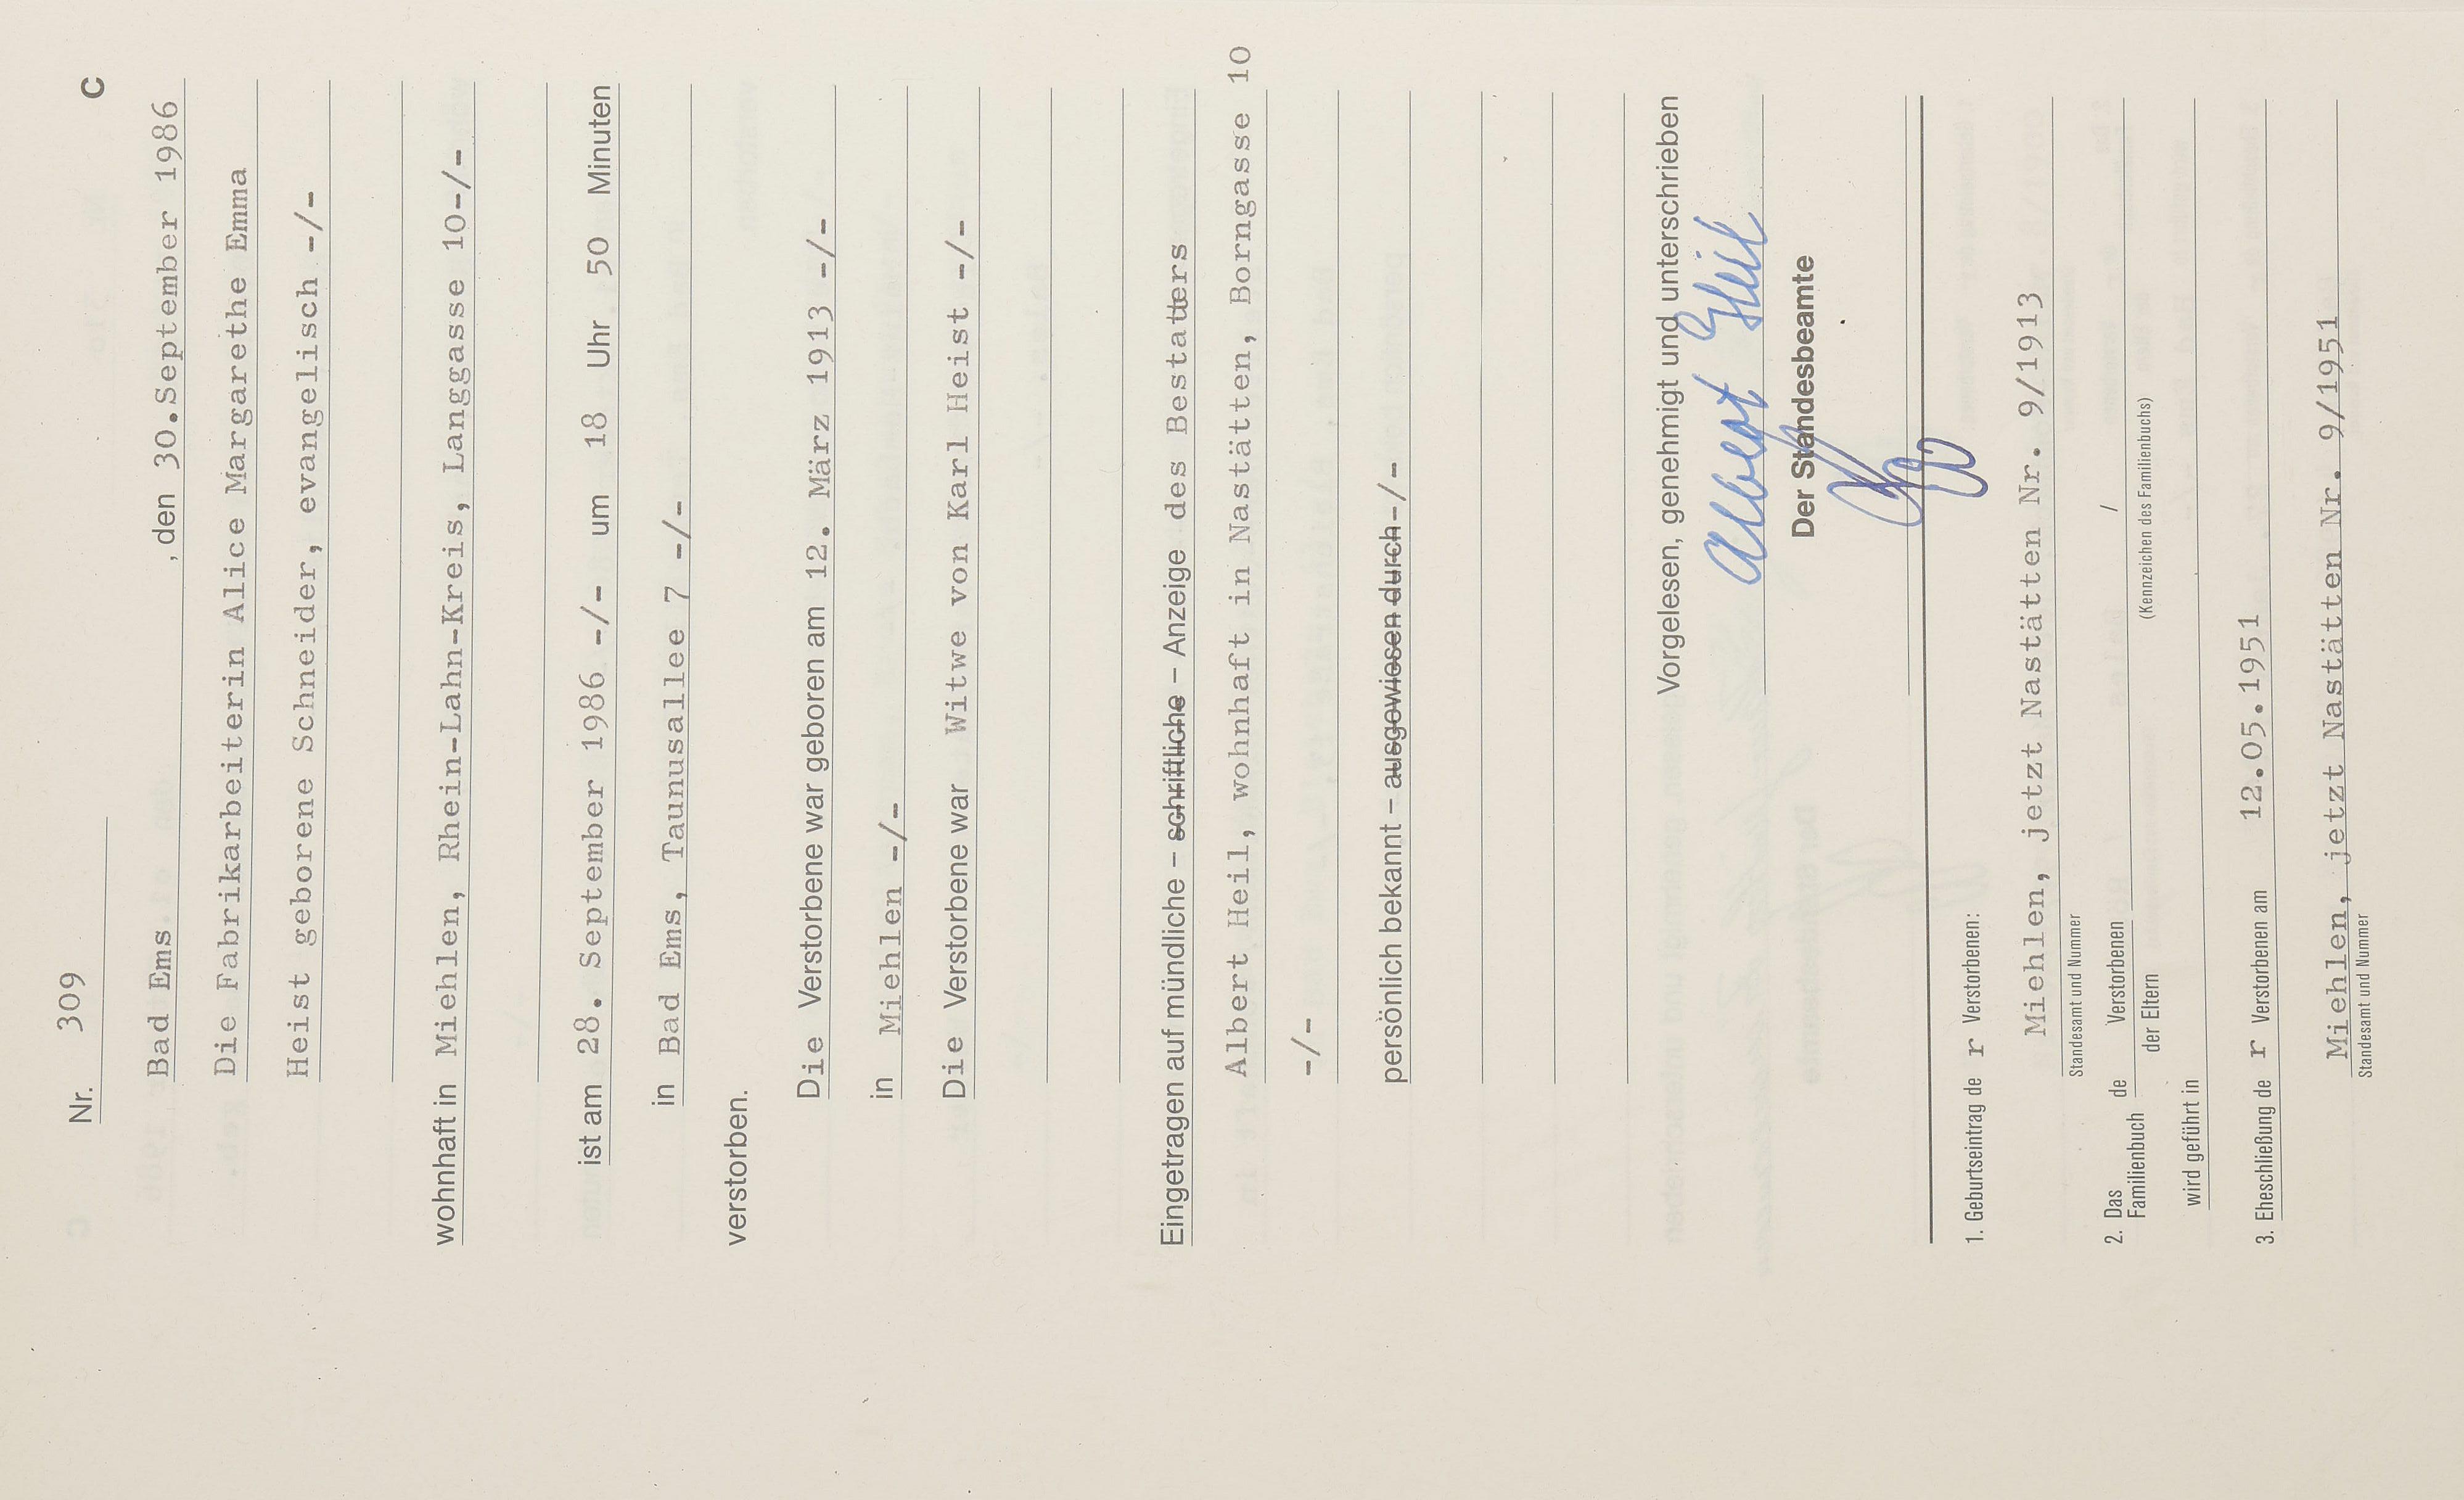 C
Nr. 309
Bad Ems , den 30.September 1986
Die Fabrikarbeiterin Alice Margarethe Emma
Heist geborene Schneider, evangelisch -/-
wohnhaft in Miehlen, Rhein-Lahn-Kreis, Langgasse 10-/-
ist am 28. September 1986 -/- um 18 Uhr 50 Minuten
in Bad Ems, Taunusallee 7 -/-
verstorben.
Die Verstorbene war geboren am 12. März 1913 -/-
in Miehlen -/-
Die Verstorbene war Witwe von Karl Heist -/-
Eingetragen auf mündliche – schriftliche – Anzeige des Bestatters
Albert Heil, wohnhaft in Nastätten, Borngasse 10
-/-
persönlich bekannt – ausgewiesen durch -/-
Vorgelesen, genehmigt und unterschrieben
Albert Heil
Der Standesbeamte
1. Geburtseintrag de r Verstorbenen:
Miehlen, jetzt Nastätten Nr. 9/1913
Standesamt und Nummer
2. Das Familienbuch de Verstorbenen /
der Eltern (Kennzeichen des Familienbuchs)
wird geführt in
3. Eheschließung de r Verstorbenen am 12.05.1951
Miehlen, jetzt Nastätten Nr. 9/1951
Standesamt und Nummer